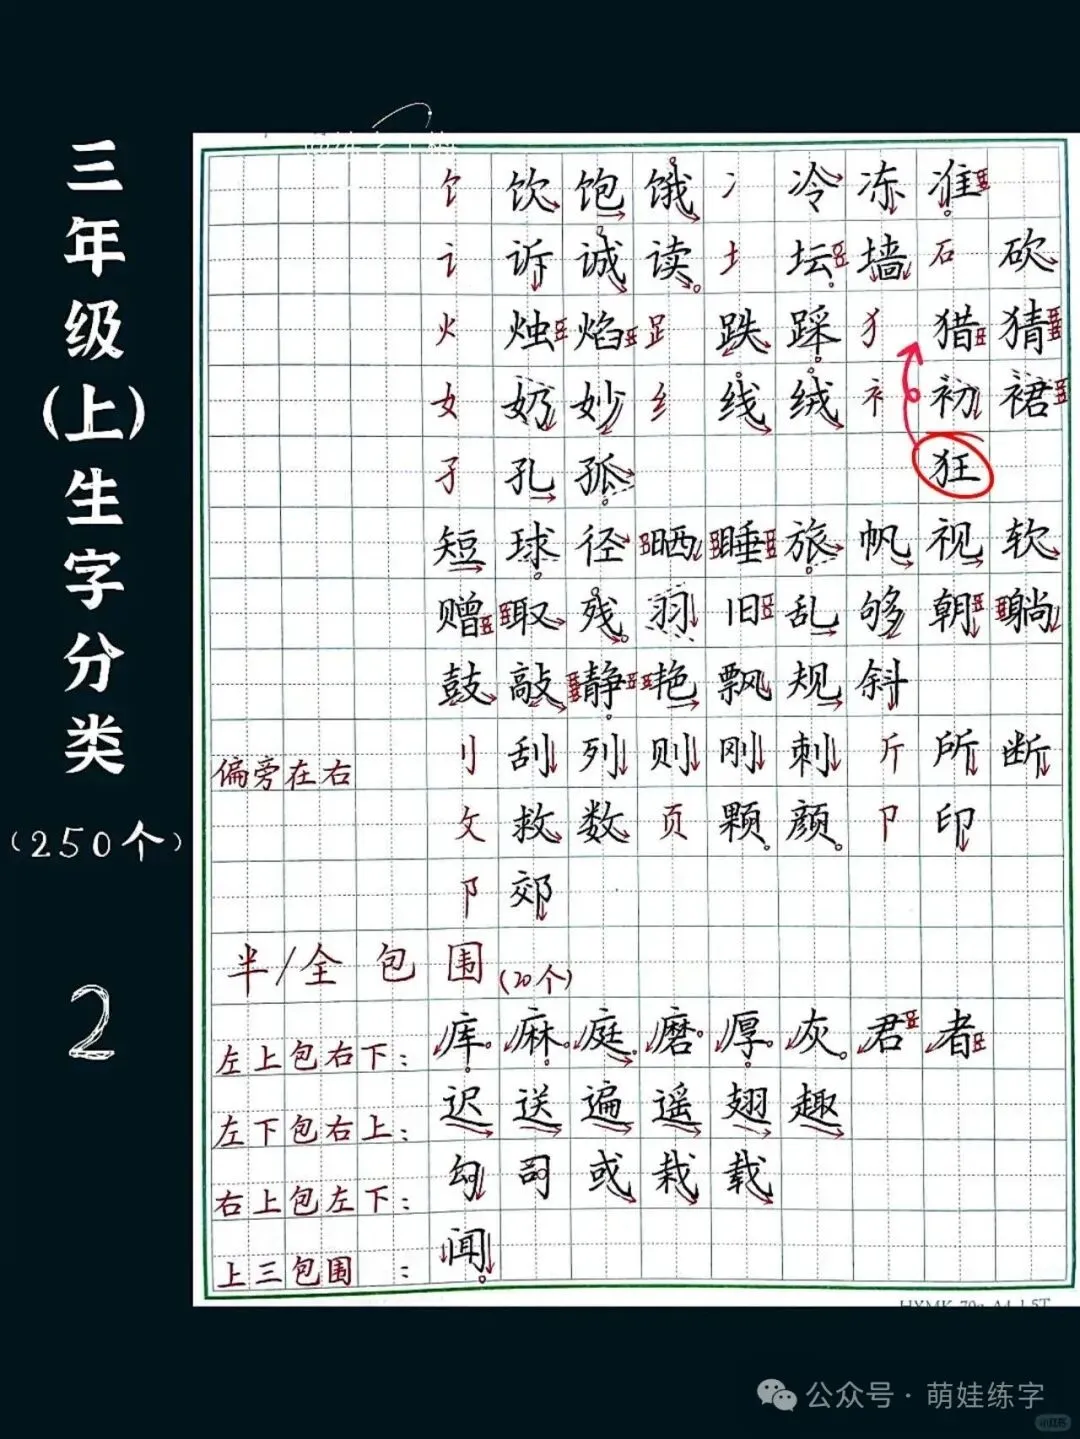 三年级(上)生字分类
(250个)
2
饣 饮 饱 饿 冫 冷 冻 准
讠 诉 诚 读 土 坛 墙 石 砍
火 烛 焰 𧾷 跌 踩 犭 猎 猜
女 奶 妙 纟 线 绒 衤 初 裙
孑 孔 孤 狂
短 球 径 晒 睡 旅 帆 视 软
赠 取 残 羽 旧 乱 够 朝 躺
鼓 敲 静 艳 飘 规 斜
偏旁在右 刂 刮 列 则 刚 刺 斤 所 断
攵 救 数 页 颗 颜 卩 印
阝 郊
半/全包围(20个)
左上包右下: 库 麻 庭 磨 厚 灰 君 者
左下包右上: 迟 送 遍 遥 翅 趣
右上包左下: 勾 司 或 栽 载
上三包围: 闻
公众号·萌娃练字
小红书